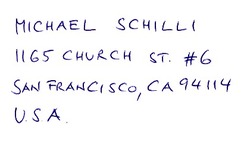 MICHAEL SCHILLI
1165 CHURCH ST. #6
SAN FRANCISCO, CA 94114
U.S.A.